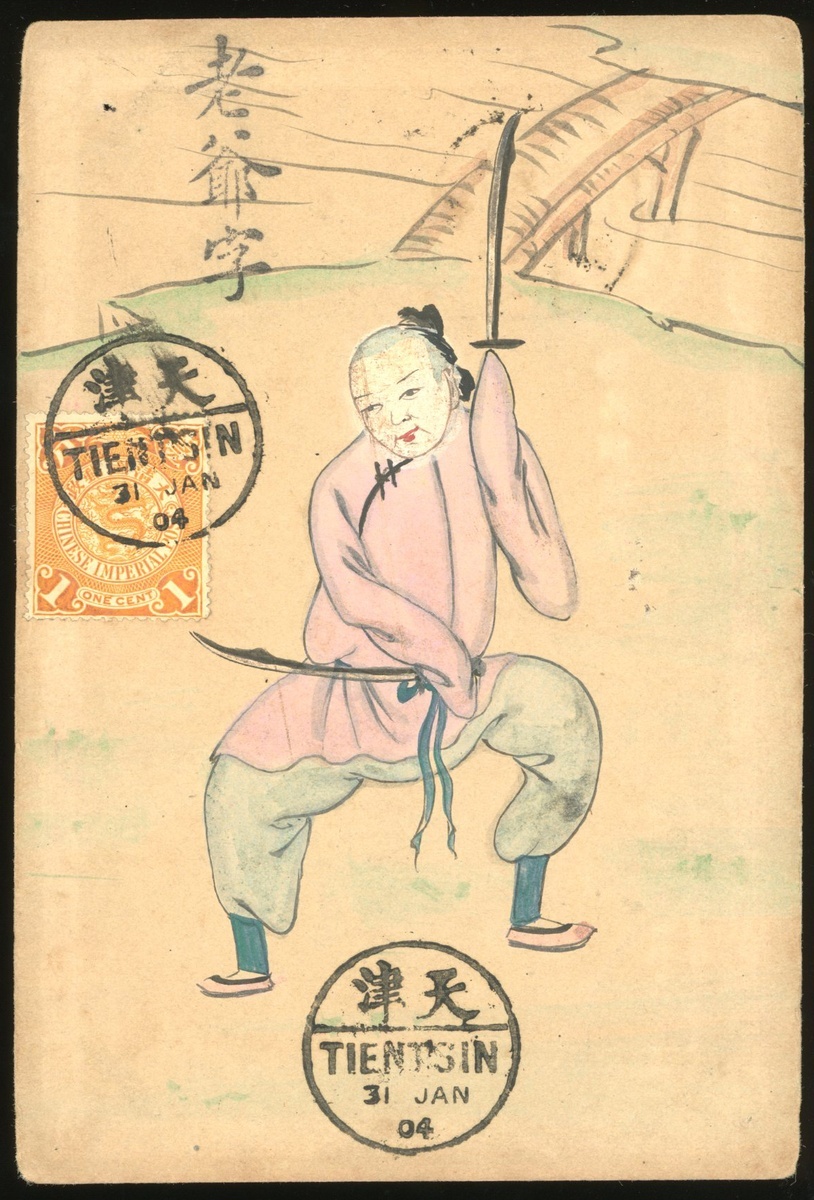 老爺字
津天
TIENTSIN
31 JAN
04
CHINESE IMPERIAL POST
1 ONE CENT 1
津天
TIENTSIN
31 JAN
04